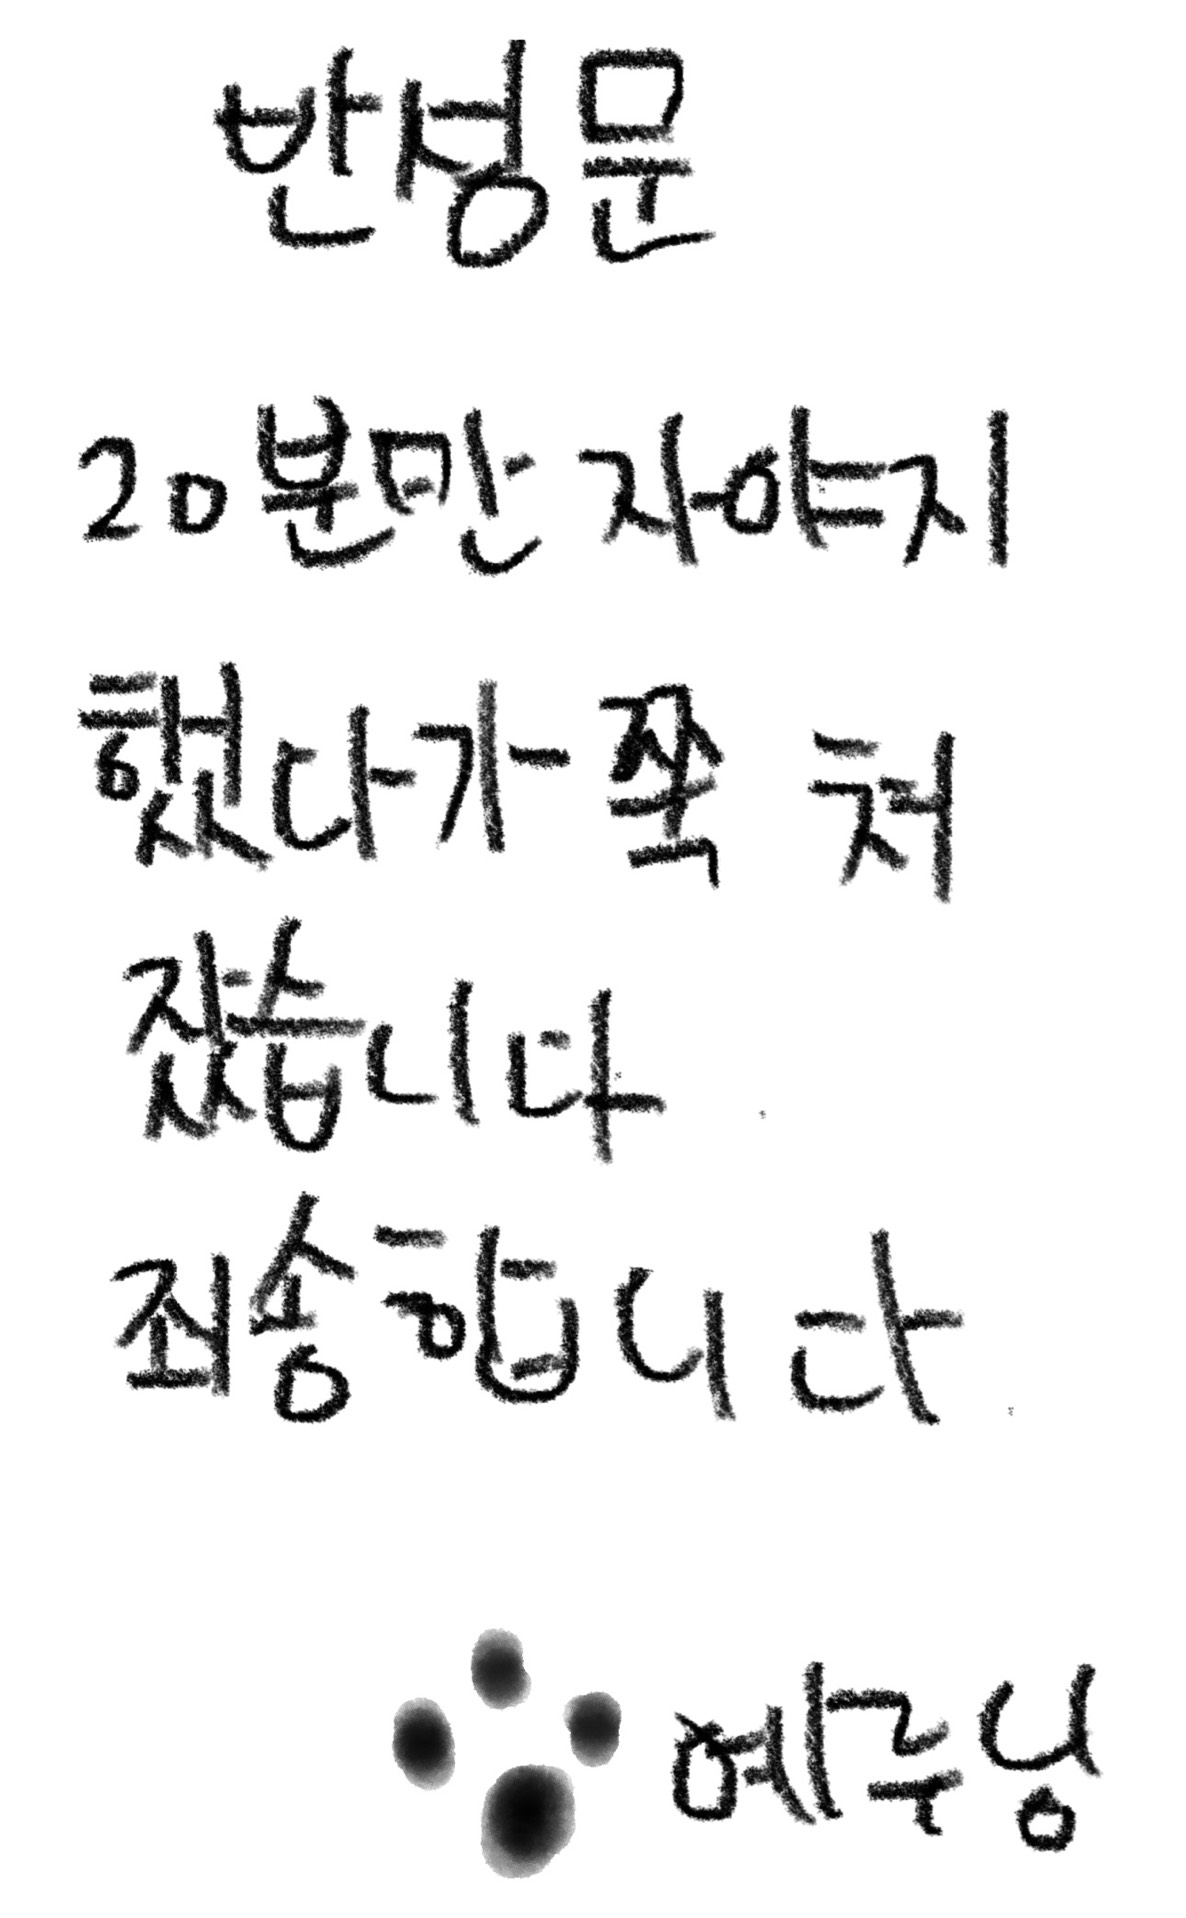 반성문
20분만 자야지
했다가 쭉 쳐
잤습니다.
죄송합니다.
예루닝